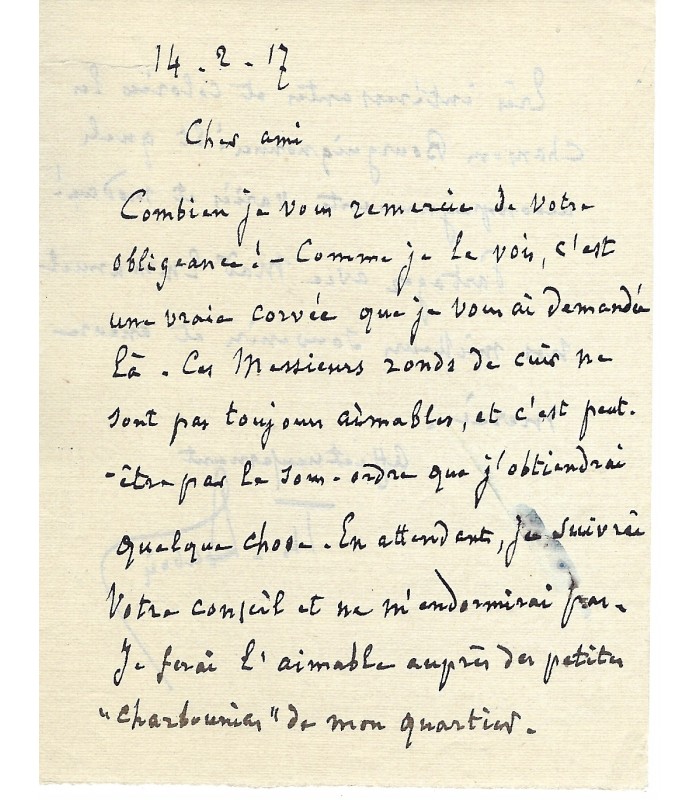 14 - 2 - 17
Cher ami
Combien je vous remercie de votre
obligeance ! - Comme je le vois, c'est
une vraie corvée que je vous ai demandée
là . Ces Messieurs ronds de cuir ne
sont pas toujours aimables, et c'est peut-
-être par le sous-ordre que j'obtiendrai
quelque chose . En attendant, je suivrai
Votre conseil et ne m'endormirai pas .
Je ferai l'aimable auprès des petites
"charbounias" de mon quartier .